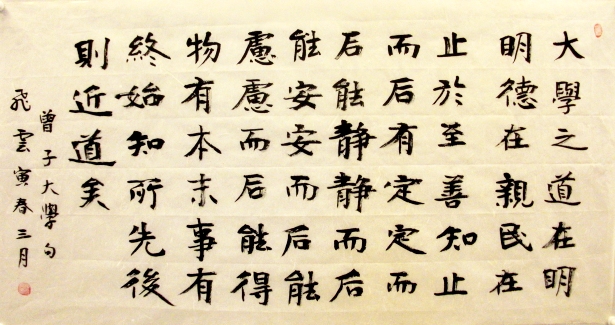 大學之道在明
明德在親民在
止於至善知止
而后有定定而
后能静静而后
能安安而后能
慮慮而后能得
物有本末事有
終始知所先後
則近道矣
曾子大學句
飛雲寅春三月